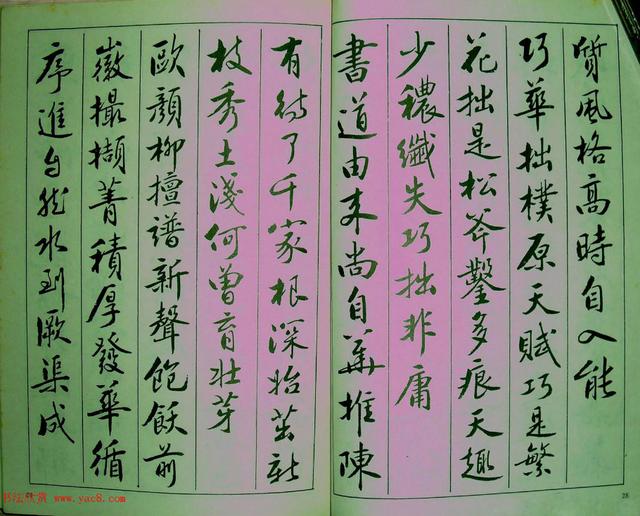 質風格高時自入能
巧華拙樸原天賦巧是繁
花拙是松斧鑿多痕天趣
少穠纖失巧拙非庸
書道由来尚自華推陳
有待了千家根深始茁新
枝秀土淺何曾育壯芽
歐顏柳擅譜新聲飽飫前
徽撮擷菁積厚發華循
序進自然水到厥渠成
书法欣赏 www.yac8.com
28